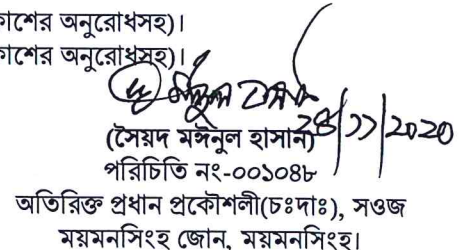 কাশের অনুরোধসহ)।
কাশের অনুরোধসহ)।
২৪/১১/২০২০
(সৈয়দ মঈনুল হাসান)
পরিচিতি নং-০০১০৪৮
অতিরিক্ত প্রধান প্রকৌশলী(চঃদাঃ), সওজ
ময়মনসিংহ জোন, ময়মনসিংহ।